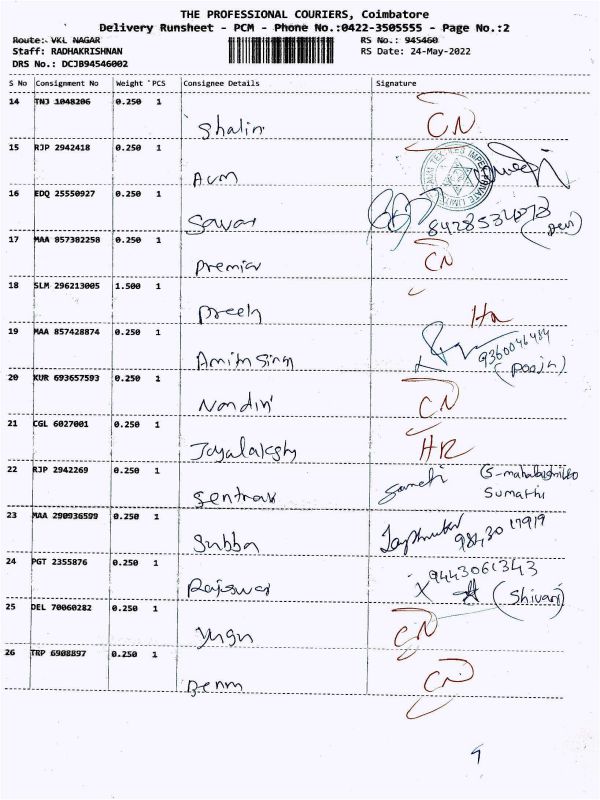 THE PROFESSIONAL COURIERS, Coimbatore
Delivery Runsheet - PCM - Phone No.:0422-3505555 - Page No.:2
Route: VKL NAGAR RS No.: 945460
Staff: RADHAKRISHNAN RS Date: 24-May-2022
DRS No.: DCJB94546002
S No Consignment No Weight PCS Consignee Details Signature
14 TNJ 1048206 0.250 1 Shalin CN
15 RJP 2942418 0.250 1 Avm
16 EDQ 25550927 0.250 1 Savar (Devi)
17 MAA 857382258 0.250 1 Premier CN
18 SLM 296213005 1.500 1 Preeh
19 MAA 857428874 0.250 1 Amitn Sing 9360046484 (Pooja)
20 KUR 693657593 0.250 1 Nandin CN
21 CGL 6027001 0.250 1 Jayalaksh HR
22 RJP 2942269 0.250 1 Sentrav Sumathi
23 MAA 290936599 0.250 1 Subba 98430 17919
24 PGT 2355876 0.250 1 Rajswar X 9443061343 (Shivani)
25 DEL 70060282 0.250 1 CN
26 TRP 6908897 0.250 1 Benm CN